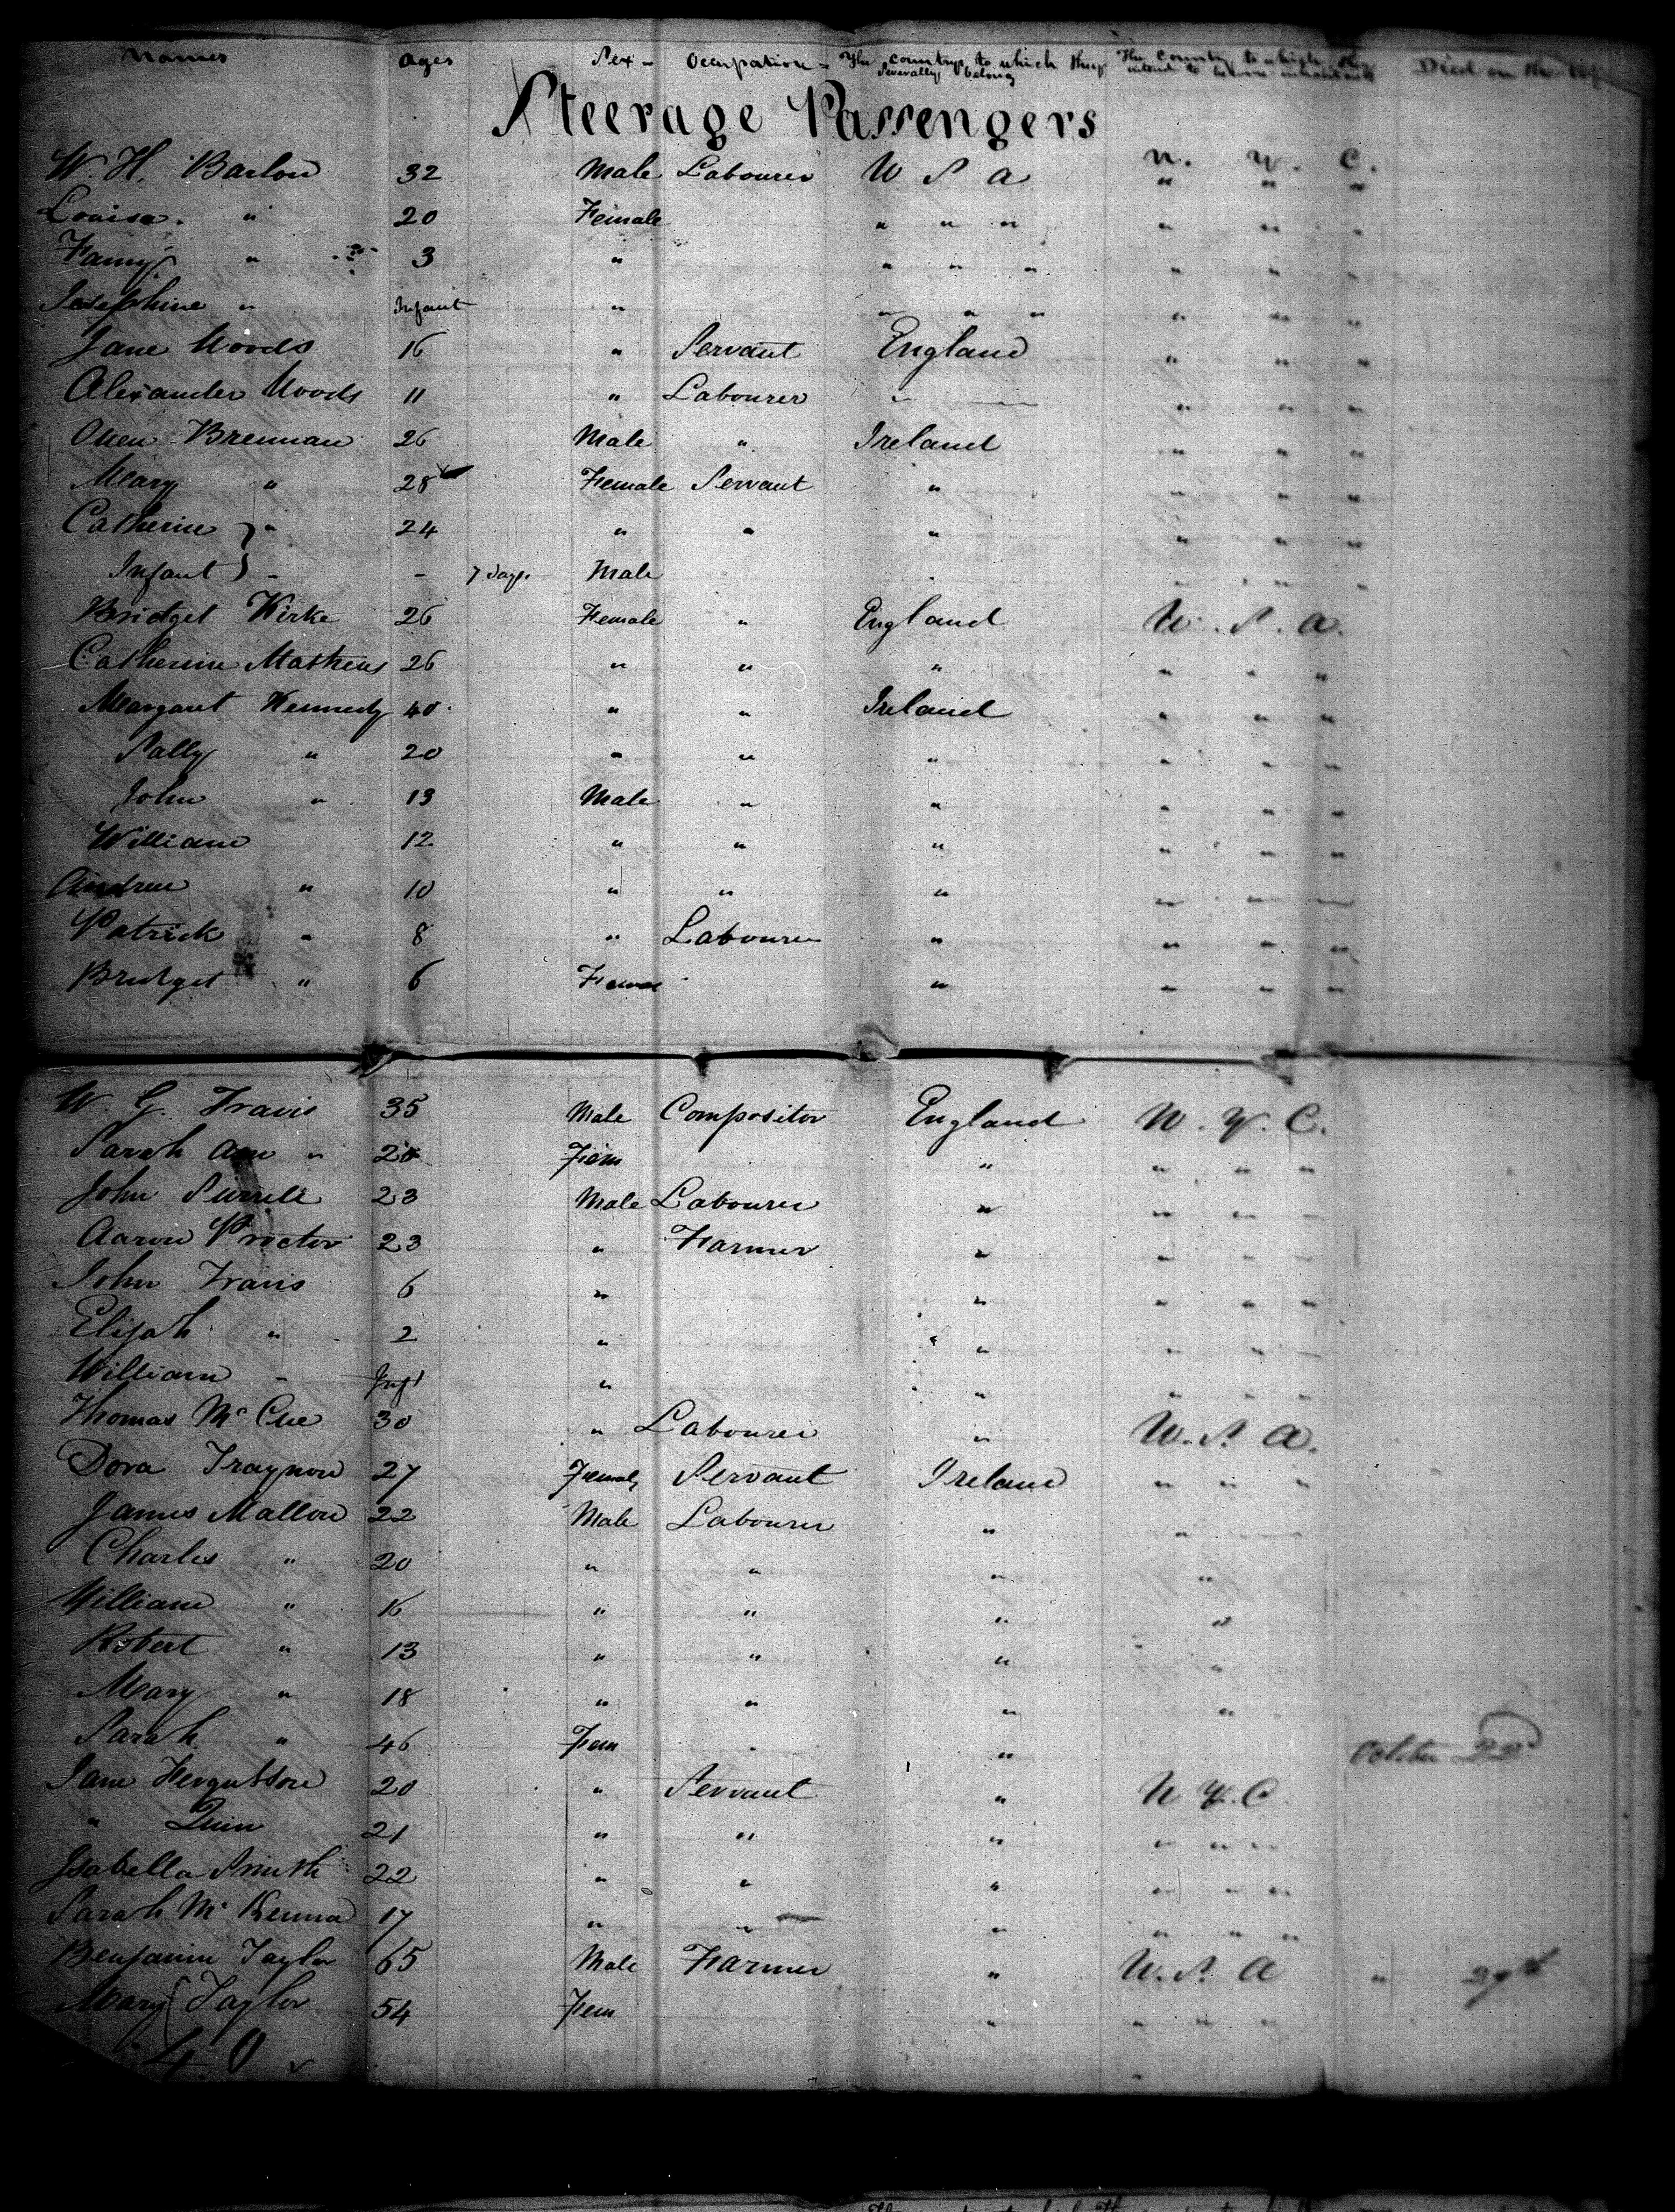 Names Ages Sex - Occupation - The country to which they severally belong The Country to which they intend to become inhabitants Died on the
Steerage Passengers
W. H. Barlow 32 Male Labourer U S A N. Y. C.
Louisa " 20 Female " " " " " "
Fanny " 3 " " " " " " "
Josephine " Infant " " " " " " "
Jane Woods 16 " Servant England " " "
Alexander Woods 11 " Labourer " " " "
Owen Brennan 26 Male " Ireland " " "
Mary " 28 Female Servant " " " "
Catherine } " 24 " " " " " "
Infant } - - 7 days Male " " " "
Bridget Kirke 26 Female " England U. S. A.
Catherine Mathews 26 " " " " " "
Margaret Kennedy 40 " " Ireland " " "
Sally " 20 " " " " " "
John " 13 Male " " " " "
William 12 " " " " " "
Andrew " 10 " " " " " "
Patrick " 8 " Labourer " " " "
Bridget " 6 Female " " " "
W. G. Travis 35 Male Compositor England N. Y. C.
Sarah Ann " Fem " " " "
John 23 Male Labourer " " " "
Aaron Proctor 23 " Farmer " " " "
John Travis 6 " " " " "
Elijah " 2 " " " " "
William " Inft " " " " "
Thomas Mc Cue 30 " Labourer " U. S. A.
Dora Traynor 27 Female Servant Ireland " " "
James Mallon 22 Male Labourer " "
Charles " 20 " " " "
William " 16 " " " "
Robert " 13 " " " "
Mary " 18 " " " "
Sarah " 46 Fem " " October 22d
Jane Fergusson 20 " Servant " N Y. C
" Quin 21 " " " " " "
Isabella Smith 22 " " " " " "
Sarah Mc Kenna 17 " " " " " "
Benjamin Taylor 65 Male Farmer " U. S. A " 29th
Mary Taylor 54 Fem " " " "
40